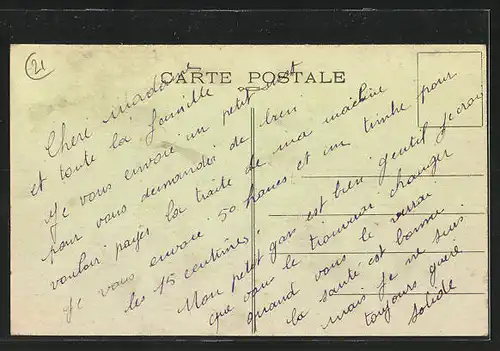 21
CARTE POSTALE
Chère madame
et toute la famille
Je vous envoie un petit mot
pour vous demander de bien
vouloir payer la traite de ma machine
Je vous envoie 50 francs et un timbre pour
les 15 centimes.
Mon petit gas est bien gentil Je crois
que vous le trouverai changer
quand vous le verrai
la santé est bonne
mais je ne suis
toujours guère
solide